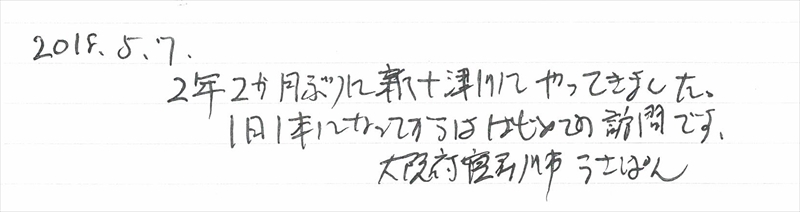 2018.5.7.
2年2か月ぶりに新十津川にやってきました。
1日1本になってからははじめての訪問です。
大阪府寝屋川市 うさぱん